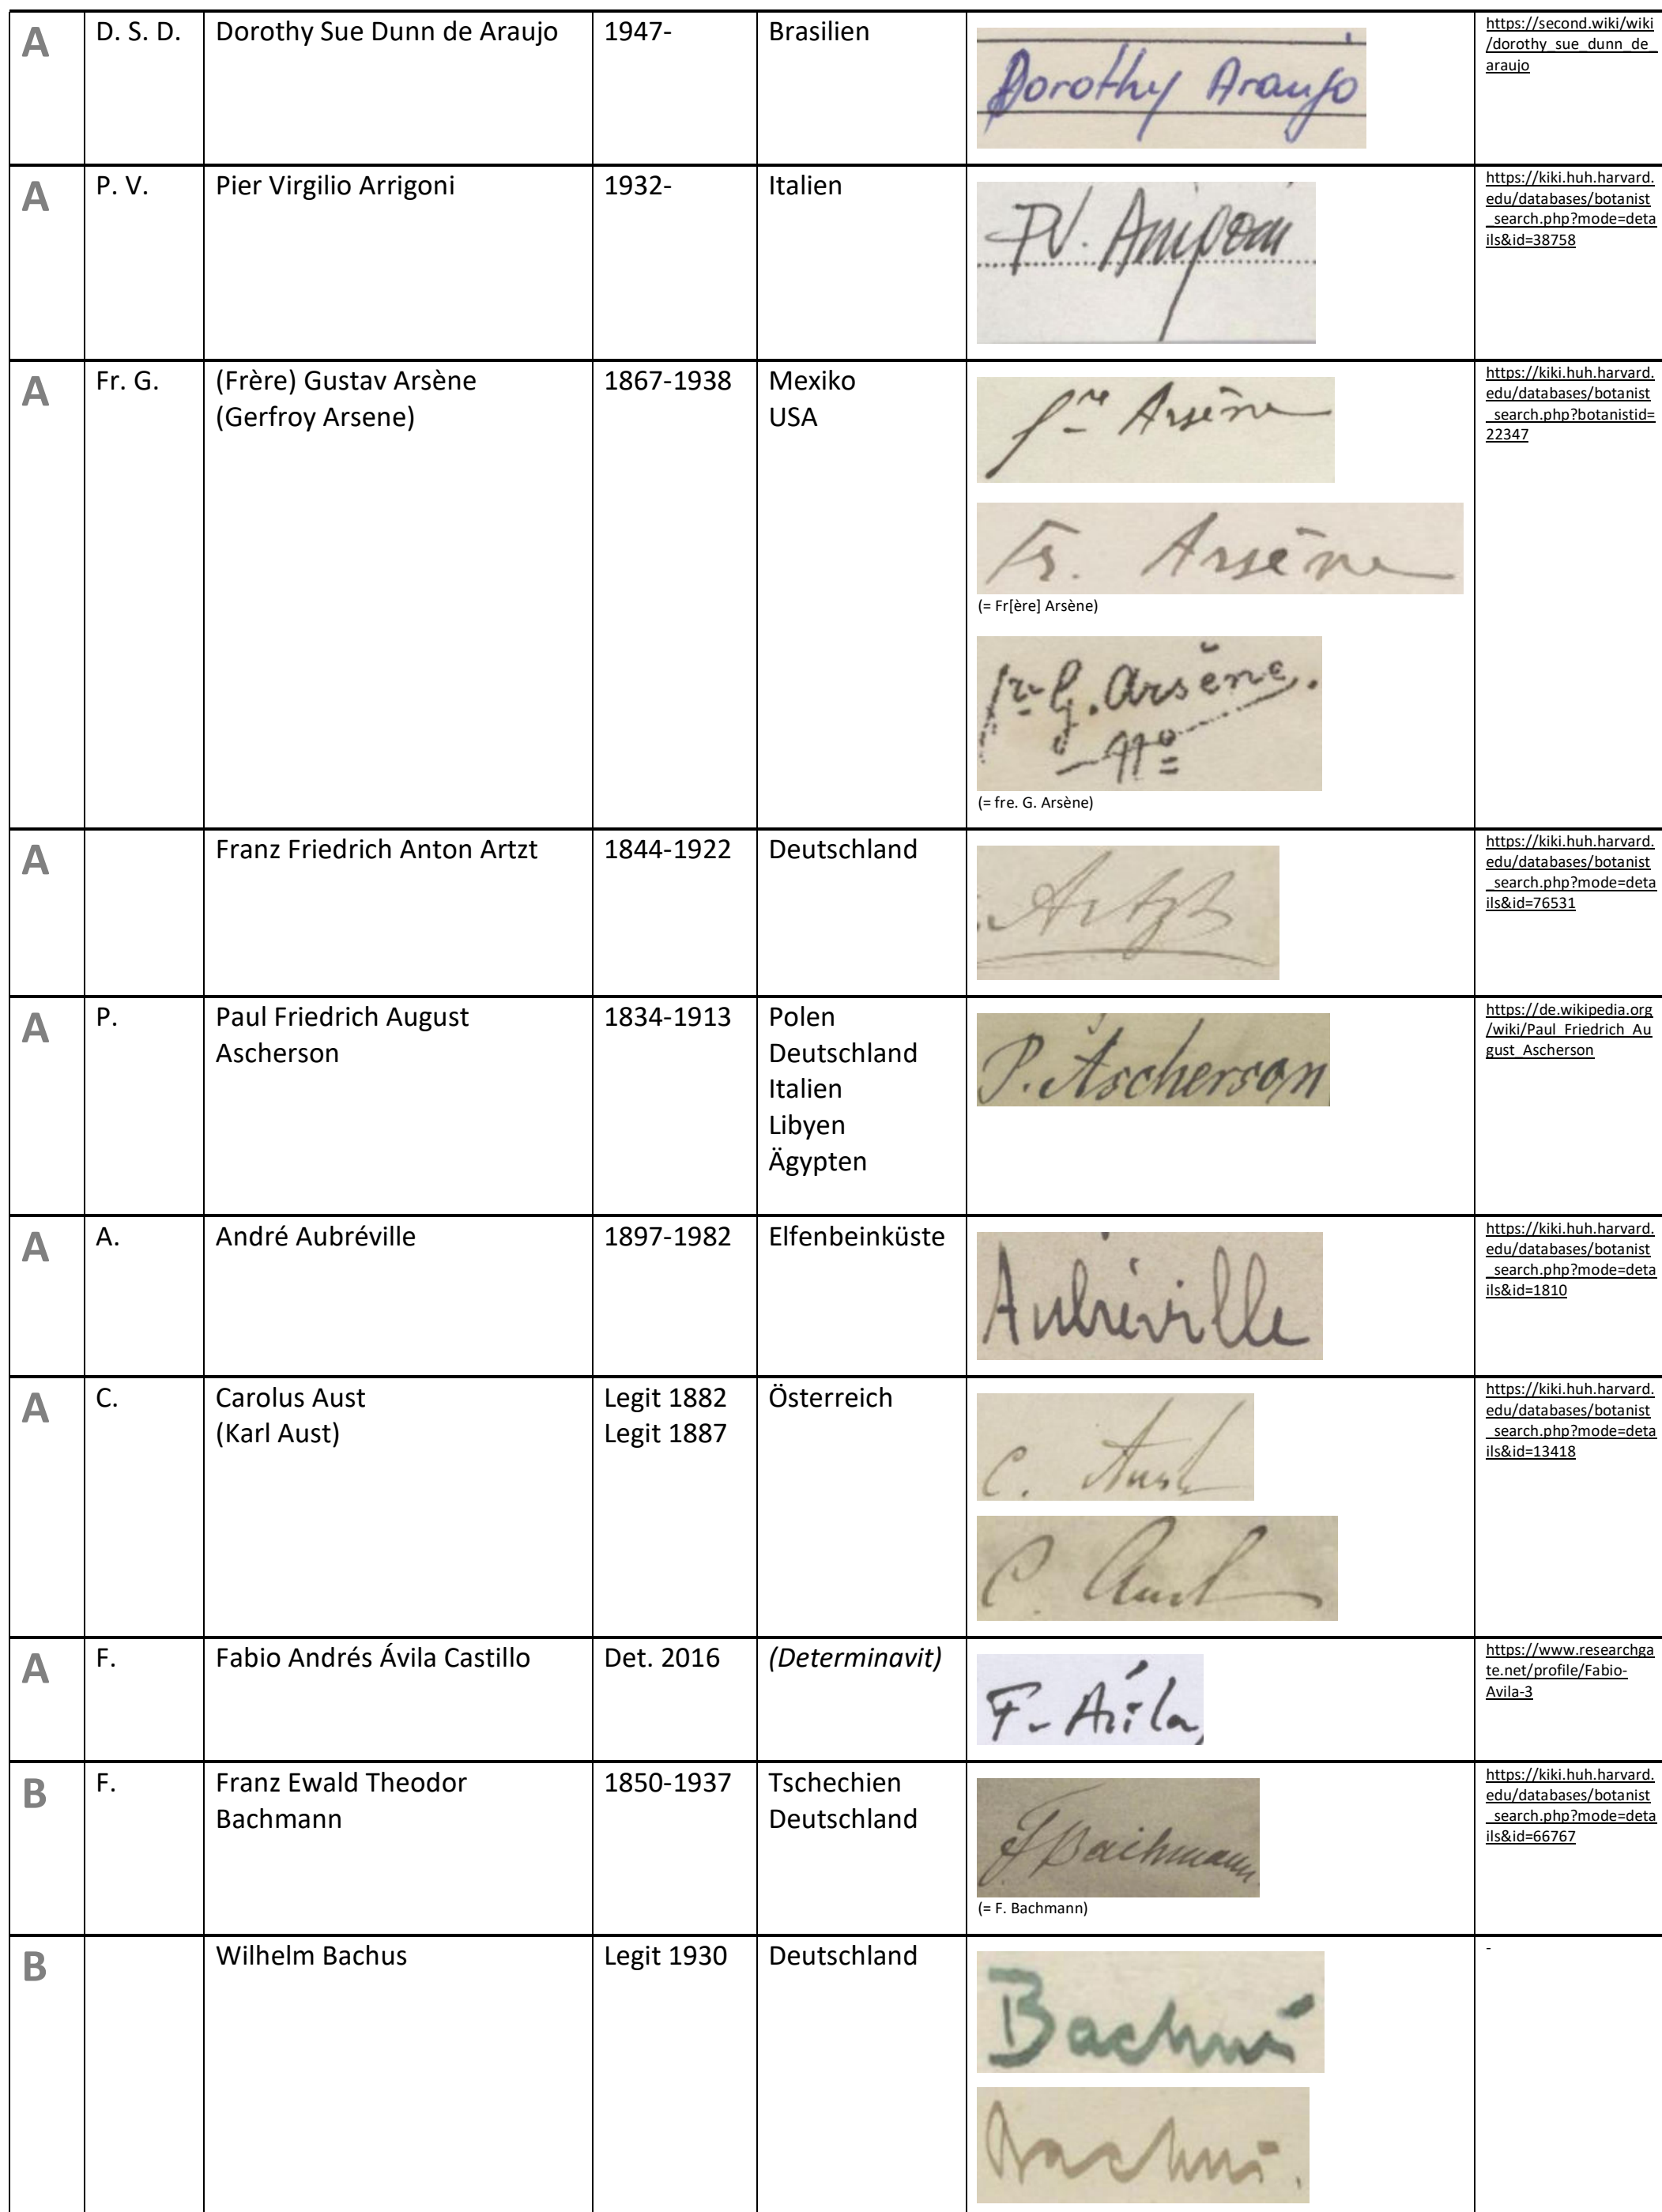 A D. S. D. Dorothy Sue Dunn de Araujo 1947- Brasilien
Dorothy Araujo
https://second.wiki/wiki
/dorothy_sue_dunn_de_
araujo
A P. V. Pier Virgilio Arrigoni 1932- Italien
P.V. Arrigoni
https://kiki.huh.harvard.
edu/databases/botanist
_search.php?mode=deta
ils&id=38758
A Fr. G. (Frère) Gustav Arsène 1867-1938 Mexiko
(Gerfroy Arsene) USA
fre Arsène
Fr. Arsène
(= Fr[ère] Arsène)
fre G. Arsène.
No
(= fre. G. Arsène)
https://kiki.huh.harvard.
edu/databases/botanist
_search.php?botanistid=
22347
A Franz Friedrich Anton Artzt 1844-1922 Deutschland
Artzt
https://kiki.huh.harvard.
edu/databases/botanist
_search.php?mode=deta
ils&id=76531
A P. Paul Friedrich August 1834-1913 Polen
Ascherson Deutschland
Italien
Libyen
Ägypten
P. Ascherson
https://de.wikipedia.org
/wiki/Paul_Friedrich_Au
gust_Ascherson
A A. André Aubréville 1897-1982 Elfenbeinküste
Aubréville
https://kiki.huh.harvard.
edu/databases/botanist
_search.php?mode=deta
ils&id=1810
A C. Carolus Aust Legit 1882 Österreich
(Karl Aust) Legit 1887
C. Aust
C. Aust
https://kiki.huh.harvard.
edu/databases/botanist
_search.php?mode=deta
ils&id=13418
A F. Fabio Andrés Ávila Castillo Det. 2016 (Determinavit)
F. Ávila
https://www.researchga
te.net/profile/Fabio-
Avila-3
B F. Franz Ewald Theodor 1850-1937 Tschechien
Bachmann Deutschland
F Bachmann
(= F. Bachmann)
https://kiki.huh.harvard.
edu/databases/botanist
_search.php?mode=deta
ils&id=66767
B Wilhelm Bachus Legit 1930 Deutschland -
Bachus
Bachus.